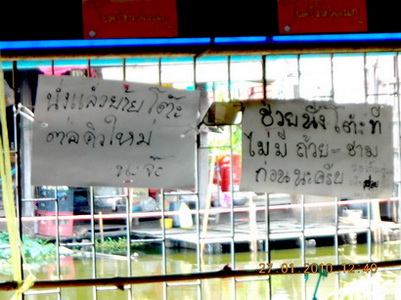 นั่งแล้วย้ายโต๊ะ
ต่อคิวใหม่
นะจ๊ะ
ช่วยนั่งโต๊ะที่
ไม่มี ถ้วย-ชาม
ก่อนนะครับ
27.01.2010 12:40